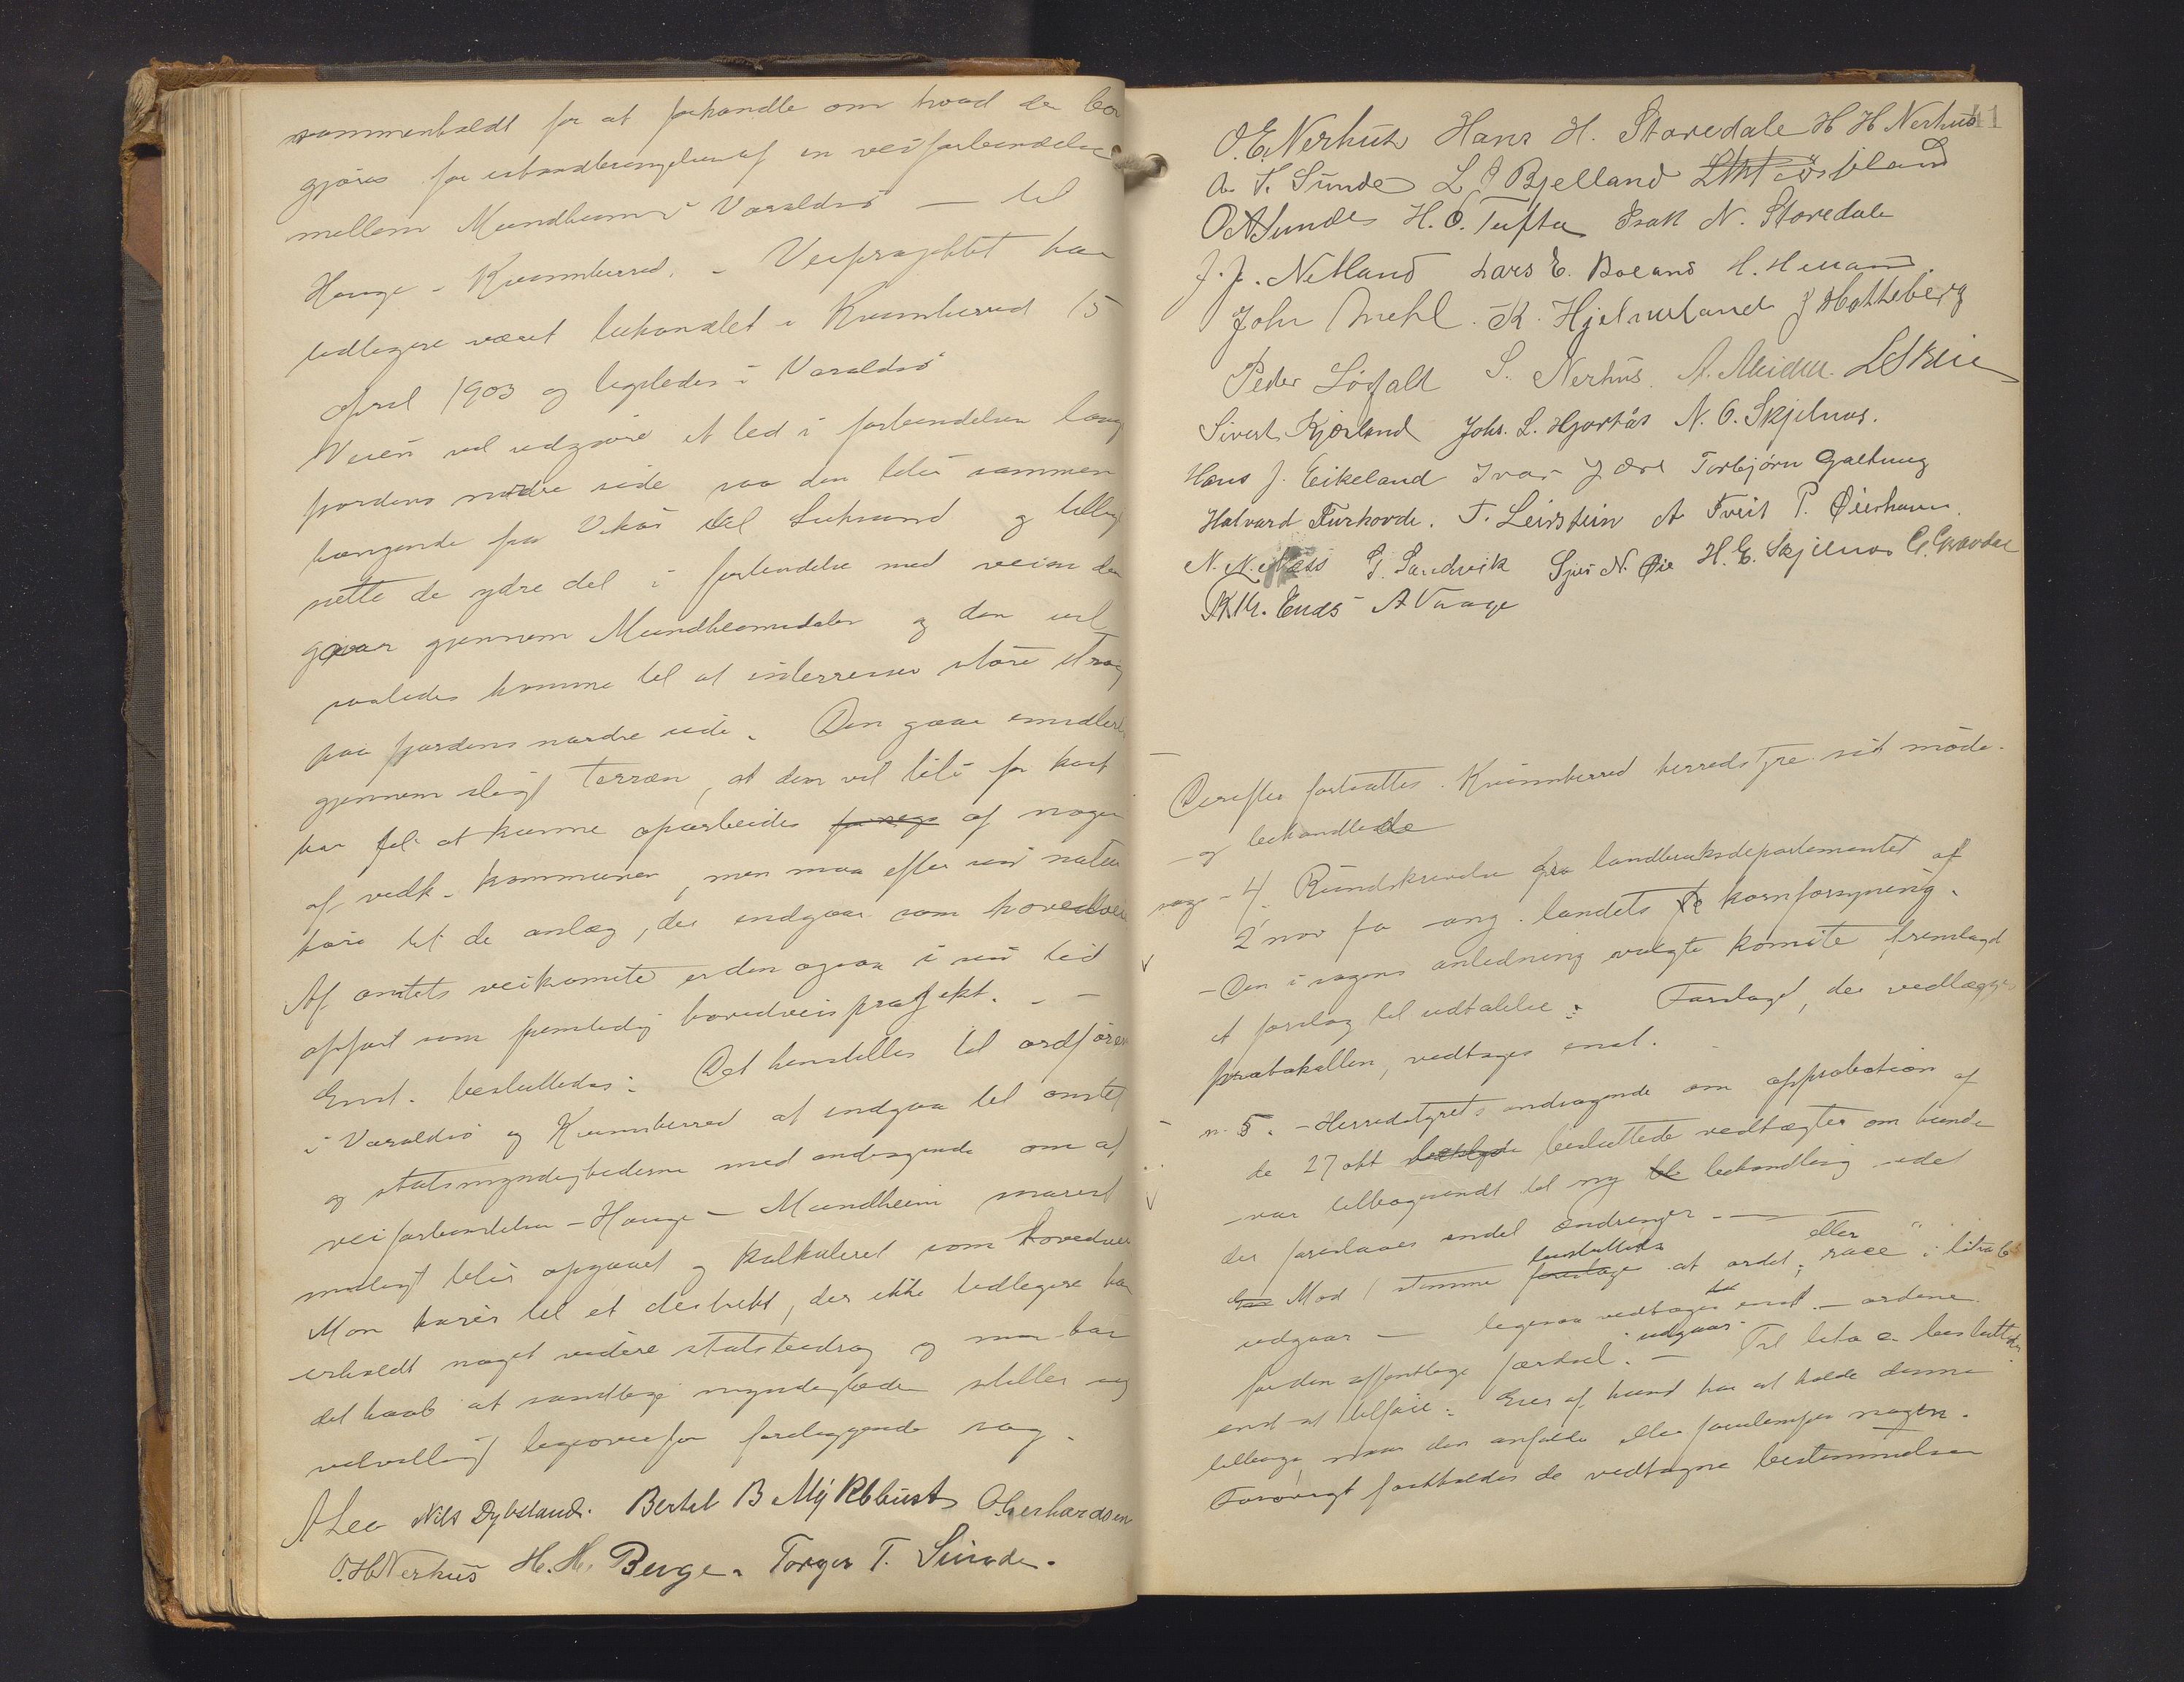 sammenholdt for at forhandle om hvad der bør
gjøres for istandbringelse af en veiforbindelse
mellem Mundheim i Varaldsø — til
Hauge - Kvinnherred. - Veiprosjektet har
tidligere været behandlet i Kvinnherred 15
april 1903 og ligeledes i Varaldsø
Veien vil udgjøre et led i forbindelsen langs
fjordens nordre side saa den blir sammen
hængende fra Vikør til Suksund og tillige
sætte de ydre del i forbindelse med veien der
gaar gjennem Mundheimsdalen og den vil
saaledes komme til at interressere store strøg
paa fjordens nordre side. Den gaar imidlertid
gjennem sligt terræn, at den vil bli for kost
bar til at kunne oparbeides af nogen
af vedk. kommuner, men maa efter sin natur
høre til de anlæg, der indgaar som hovedvei
Af amtets veikomite er den ogsaa i sin tid
opført som fremtidig hovedveisprosjekt. - -
Enst. besluttedes: Det henstilles til ordførerne
i Varaldsø og Kvinnherred at indgaa til amtet
og statsmyndighederne med andragende om at
veiforbindelsen - Hauge - Mundheim snarest
muligt blir opgaaet og kalkuleret som hovedvei
Man hører til et destrikt, der ikke tidligere har
erholdt noget videre statsbidrag og man har
det haab at samtlige myndigheder stiller sig
velvillig ligeoverfor foreliggende sag.
A Lea Nils Dybsland. Bertel B Myklebust O Gerhardsen
O. H. Nerhus H. H. Berge. Torger T. Sunde.
O. E. Nerhus Hans H. Storedale H H Nerhus 41
A. T. Sunde L J Bjelland
O A Sunde H. O. Tufta Isak N. Storedale
J. J. Netland Lars E. Boland
John Mehl. K. Hjelmeland J Hatteberg
Peder Løfald S. Nerhus. L Skeie
Sivert Kjærland Johs. L. Hjortås N. O. Skjelnes.
Hans J. Eikeland Ivar Torbjørn Galtung
Halvard Furhovde. T. Leirstein A Tveit P. Øierhavn.
N. N. Næss G. Sandvik Sjur N. Øie H. E. Skjelnes G. Gravdal
A Vaage
Derefter fortsattes Kvinnherred herredstyre sit møde.
og behandlede
sag - 4. Rundskrivelse fra landbruksdepartementet af
2 nov fa ang. landets kornforsyning.
- Den i sagens anledning valgte komite fremlagde
et forslag til udtalelse: Forslaget, der vedlægges
protokollen, vedtages enst.
n. 5. - Herredstyrets andragende om approbation af
de 27 okt besluttede vedtægter om hunde
- var tilbagesendt til ny behandling idet
der foreslaaes endel ændringer -
Mod 1 stemme besluttedes at ordet "eller race" i litra b
udgaar - ligesaa vedtages enst. - ordene
for den offentlige færdsel udgaar. - Til litra c besluttedes
enst at tilføie: Eier af hund har at holde denne
tilbage naar den anfalder eller forulemper nogen.
Forøvrigt fastholdes de vedtagne bestemmelser